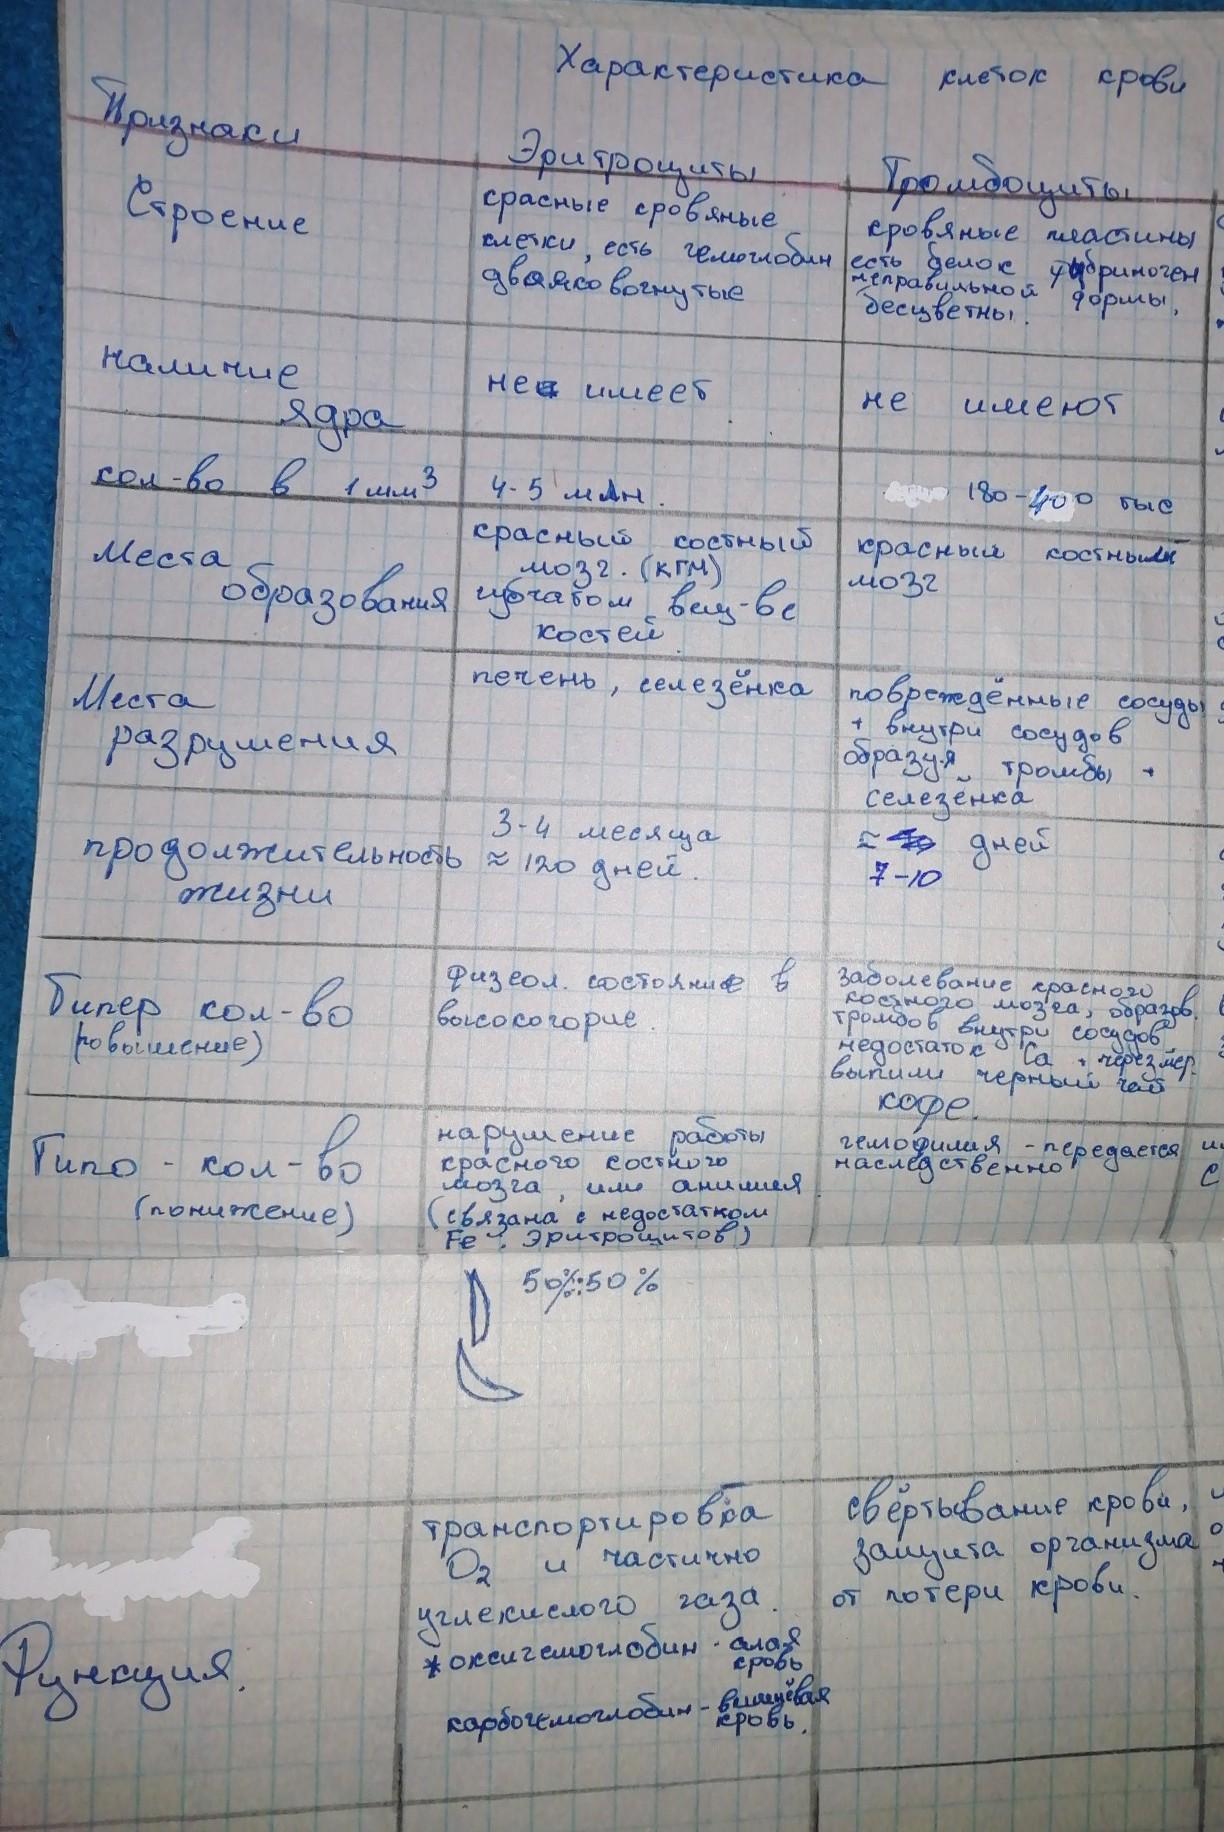 Характеристика клеток крови
Признаки
Эритроциты
Тромбоциты
Строение
красные кровяные
клетки, есть гемоглобин
двояковогнутые
кровяные пластины
есть белок фибриноген
неправильной формы,
бесцветны.
наличие
ядра
не имеет
не имеют
кол-во в 1мм³
4-5 млн.
180-400 тыс
Места
образования
красный костный
мозг. (КГМ)
губчатом вещ-ве
костей
красный костный
мозг
Места
разрушения
печень, селезёнка
повреждённые сосуды
+ внутри сосудов
образуя тромбы +
селезёнка
продолжительность
жизни
3-4 месяца
≈ 120 дней.
≈ дней
7-10
Гипер кол-во
(повышение)
физеол. состояние в
высокогорие.
заболевание красного
костного мозга, образов.
тромбов внутри сосудов
недостаток Ca + черезмер.
выпили черный чай
кофе.
Гипо-кол-во
(понижение)
нарушение работы
красного костного
мозга, или анимия.
(связана с недостатком
Fe Эритроцитов)
гемофилия - передается
наследственно
50%:50%
Функция.
транспортировка
O₂ и частично
углекислого газа.
*оксигемоглобин - алая
кровь
карбогемоглобин - вишнёвая
кровь.
свёртывание крови,
защита организма
от потери крови.